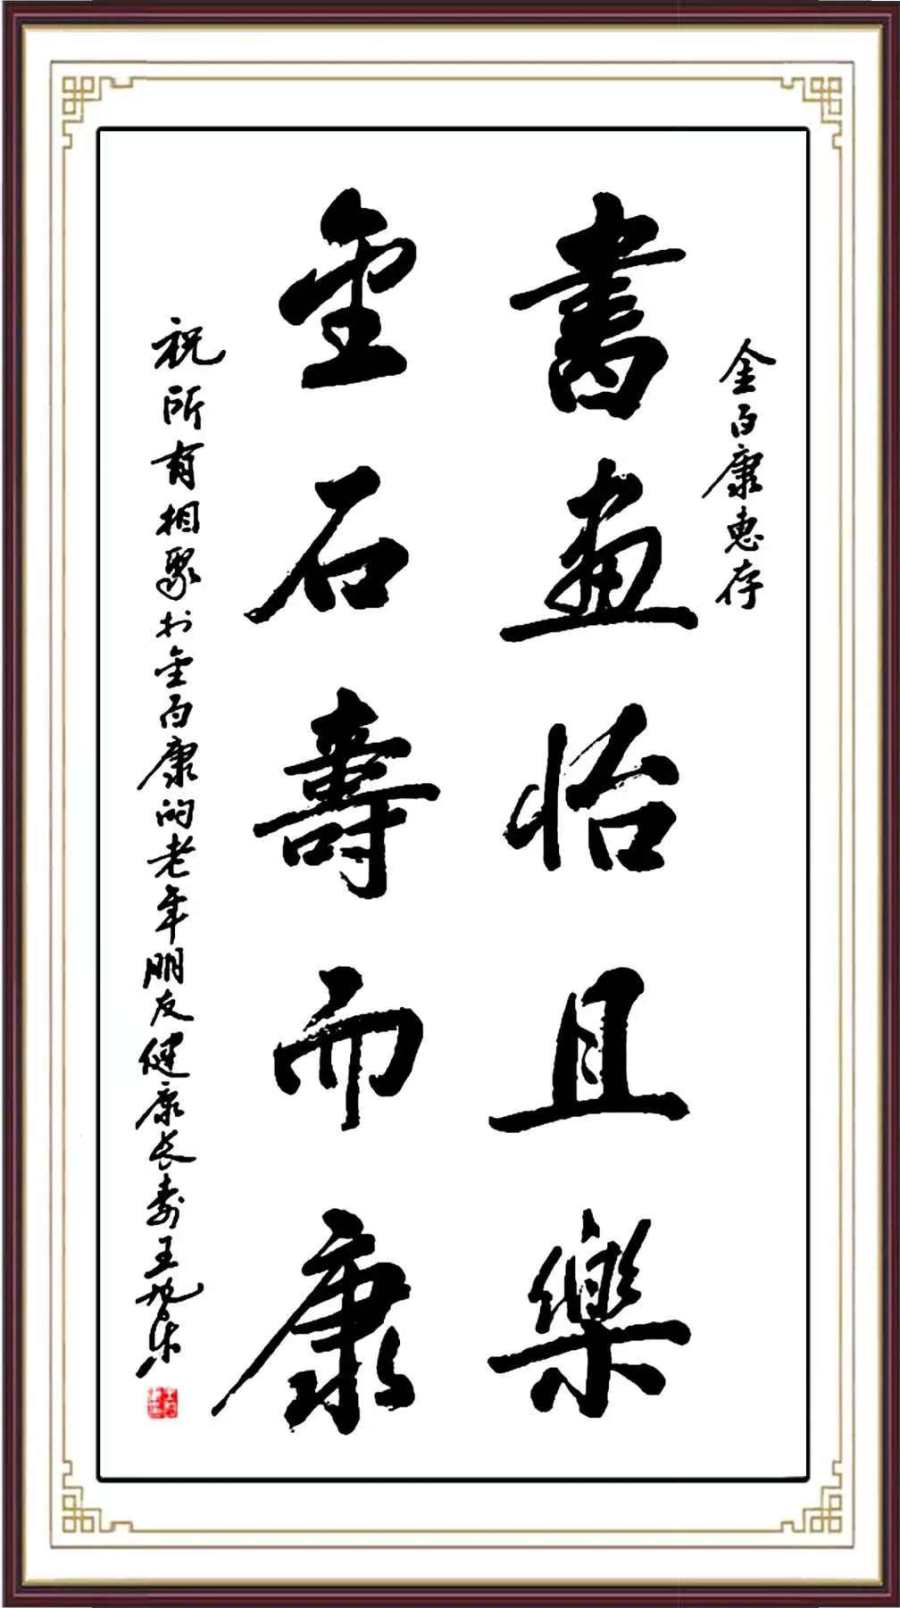 金百康惠存
書畫怡且樂
金石壽而康
祝所有相聚於金百康的老年朋友健康长寿王旭东